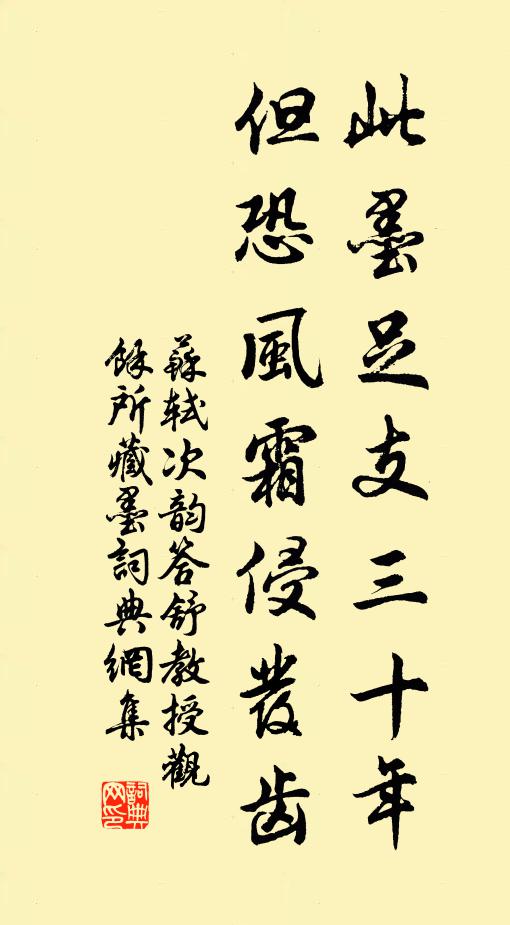 此墨足支三十年
但恐風霜侵發齿
蘇軾次韵答舒教授觀
餘所藏墨詞典網集
詞典网印